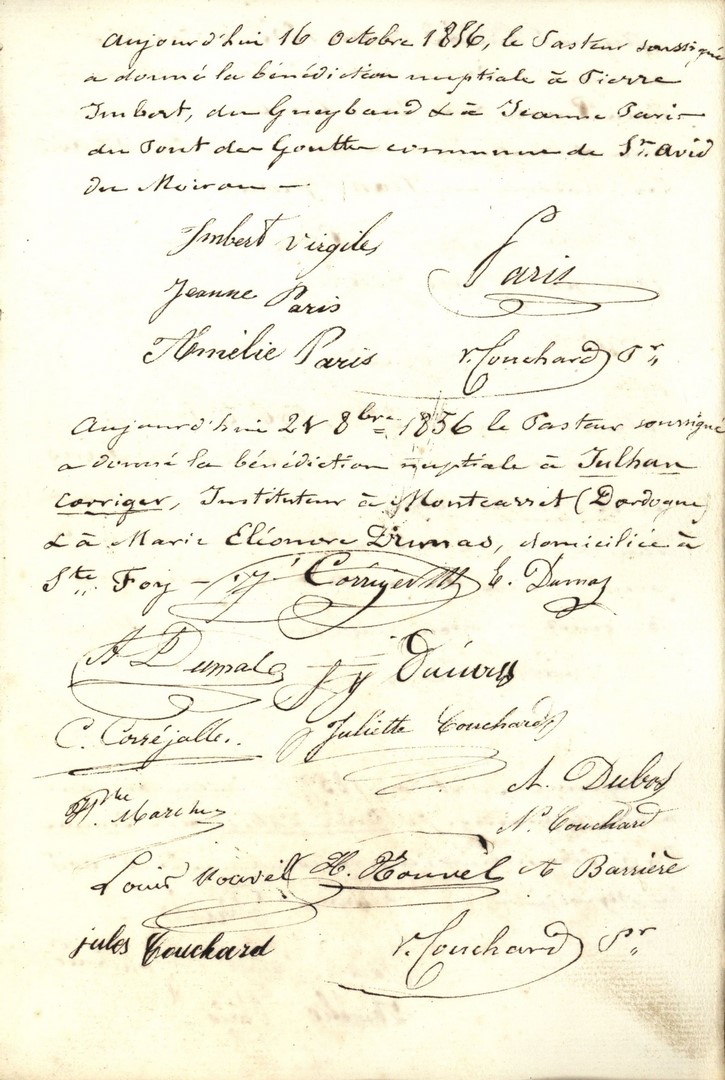 Aujourd'hui 16 Octobre 1856, le Pasteur soussigné
a donné la bénédiction nuptiale à Pierre
Imbert, du Gueybaud & à Jeanne Paris
du Pont de la Goutte commune de St. Avid
du Moiron —
Imbert Virgile
Paris
Jeanne Paris
Amélie Paris
V. Couchard Pr
Aujourd'hui 8bre 1856 le Pasteur soussigné
a donné la bénédiction nuptiale à Julhan
Corriger, Instituteur à Montcarret (Dordogne)
& à Marie Eléonore Dumas, domiciliée à
Ste Foy — J. Corriger E. Dumas
A Dumas
C. Corréjolles.
Juliette Couchard
A. Dubos
N. Couchard
Louis Nouvel H. Nouvel A Barrière
jules Couchard V. Couchard Pr